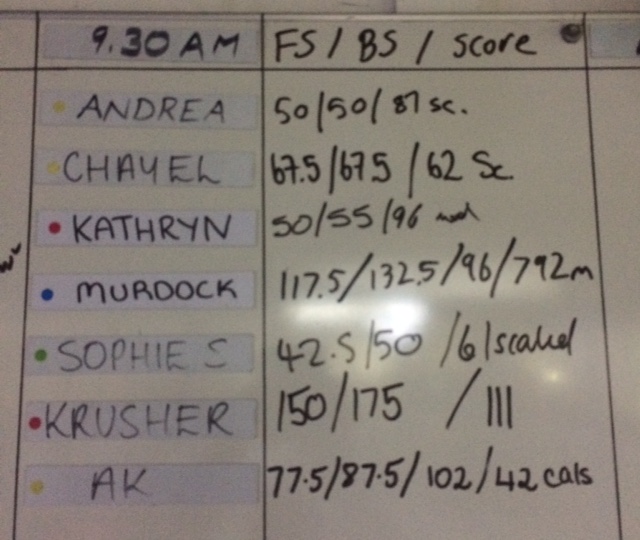 9.30 AM FS / BS / score
ANDREA 50/50/ 87 sc.
CHAYEL 67.5/67.5 /62 Sc.
KATHRYN 50/55/96
MURDOCK 117.5/132.5/96/792m
SOPHIE S 42.5/50 /61scaled
KRUSHER 150/175 /111
AK 77.5/87.5/102/42 cals